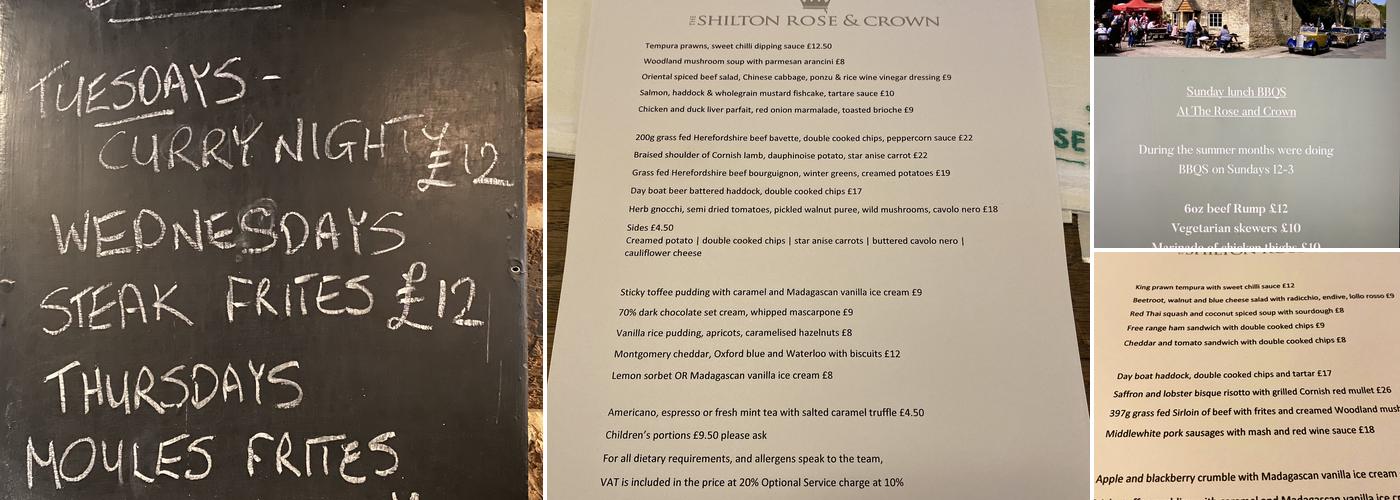 TUESDAYS -
CURRY NIGHT
£12
WEDNESDAYS
STEAK FRITES £12
THURSDAYS
MOULES FRITES
THE SHILTON ROSE & CROWN
Tempura prawns, sweet chilli dipping sauce £12.50
Woodland mushroom soup with parmesan arancini £8
Oriental spiced beef salad, Chinese cabbage, ponzu & rice wine vinegar dressing £9
Salmon, haddock & wholegrain mustard fishcake, tartare sauce £10
Chicken and duck liver parfait, red onion marmalade, toasted brioche £9
200g grass fed Herefordshire beef bavette, double cooked chips, peppercorn sauce £22
Braised shoulder of Cornish lamb, dauphinoise potato, star anise carrot £22
Grass fed Herefordshire beef bourguignon, winter greens, creamed potatoes £19
Day boat beer battered haddock, double cooked chips £17
Herb gnocchi, semi dried tomatoes, pickled walnut puree, wild mushrooms, cavolo nero £18
Sides £4.50
Creamed potato | double cooked chips | star anise carrots | buttered cavolo nero |
cauliflower cheese
Sticky toffee pudding with caramel and Madagascan vanilla ice cream £9
70% dark chocolate set cream, whipped mascarpone £9
Vanilla rice pudding, apricots, caramelised hazelnuts £8
Montgomery cheddar, Oxford blue and Waterloo with biscuits £12
Lemon sorbet OR Madagascan vanilla ice cream £8
Americano, espresso or fresh mint tea with salted caramel truffle £4.50
Children's portions £9.50 please ask
For all dietary requirements, and allergens speak to the team,
VAT is included in the price at 20% Optional Service charge at 10%
SE
Sunday lunch BBQS
At The Rose and Crown
During the summer months were doing
BBQS on Sundays 12-3
6oz beef Rump £12
Vegetarian skewers £10
Marinade of chicken thighs £10
King prawn tempura with sweet chilli sauce £12
Beetroot, walnut and blue cheese salad with radicchio, endive, lollo rosso £9
Red Thai squash and coconut spiced soup with sourdough £8
Free range ham sandwich with double cooked chips £9
Cheddar and tomato sandwich with double cooked chips £8
Day boat haddock, double cooked chips and tartar £17
Saffron and lobster bisque risotto with grilled Cornish red mullet £26
397g grass fed Sirloin of beef with frites and creamed Woodland mush
Middlewhite pork sausages with mash and red wine sauce £18
Apple and blackberry crumble with Madagascan vanilla ice cream